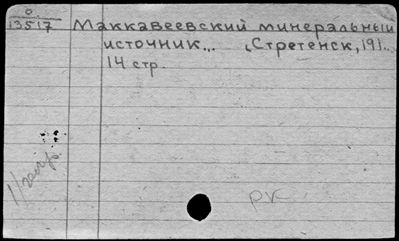 0
13517 Маккавеевский минеральный
источник... (Стретенск, 191...
14 стр.
рк